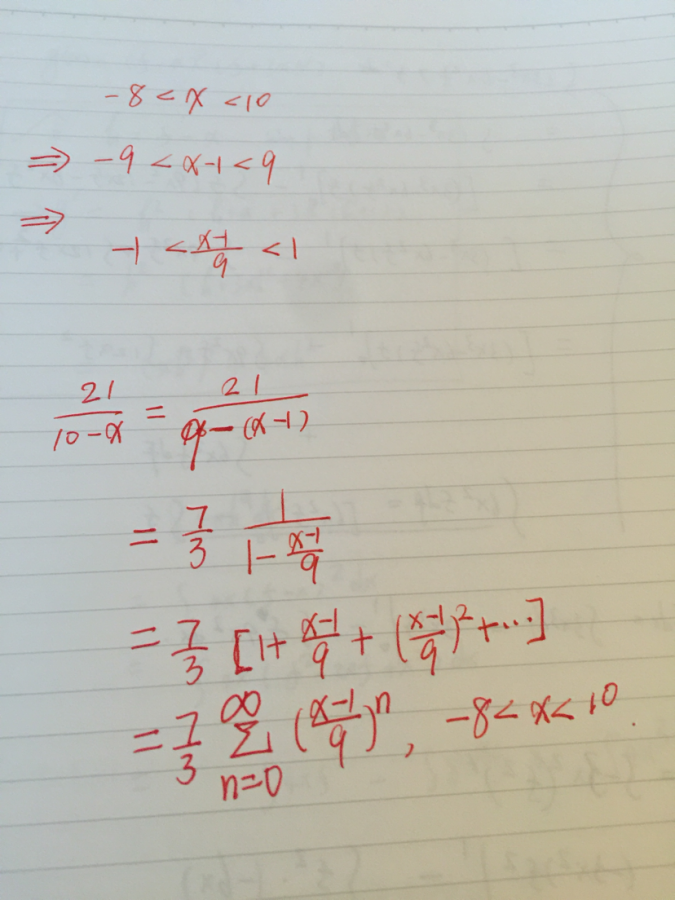 -8 < x < 10
⇒ -9 < x-1 < 9
⇒
-1 < \frac{x-1}{9} < 1
\frac{21}{10-x} = \frac{21}{9-(x-1)}
= \frac{7}{3} \frac{1}{1-\frac{x-1}{9}}
= \frac{7}{3} [1+\frac{x-1}{9}+(\frac{x-1}{9})^2+⋯]
= \frac{7}{3} \sum_{n=0}^{∞} (\frac{x-1}{9})^n, -8 < x < 10.